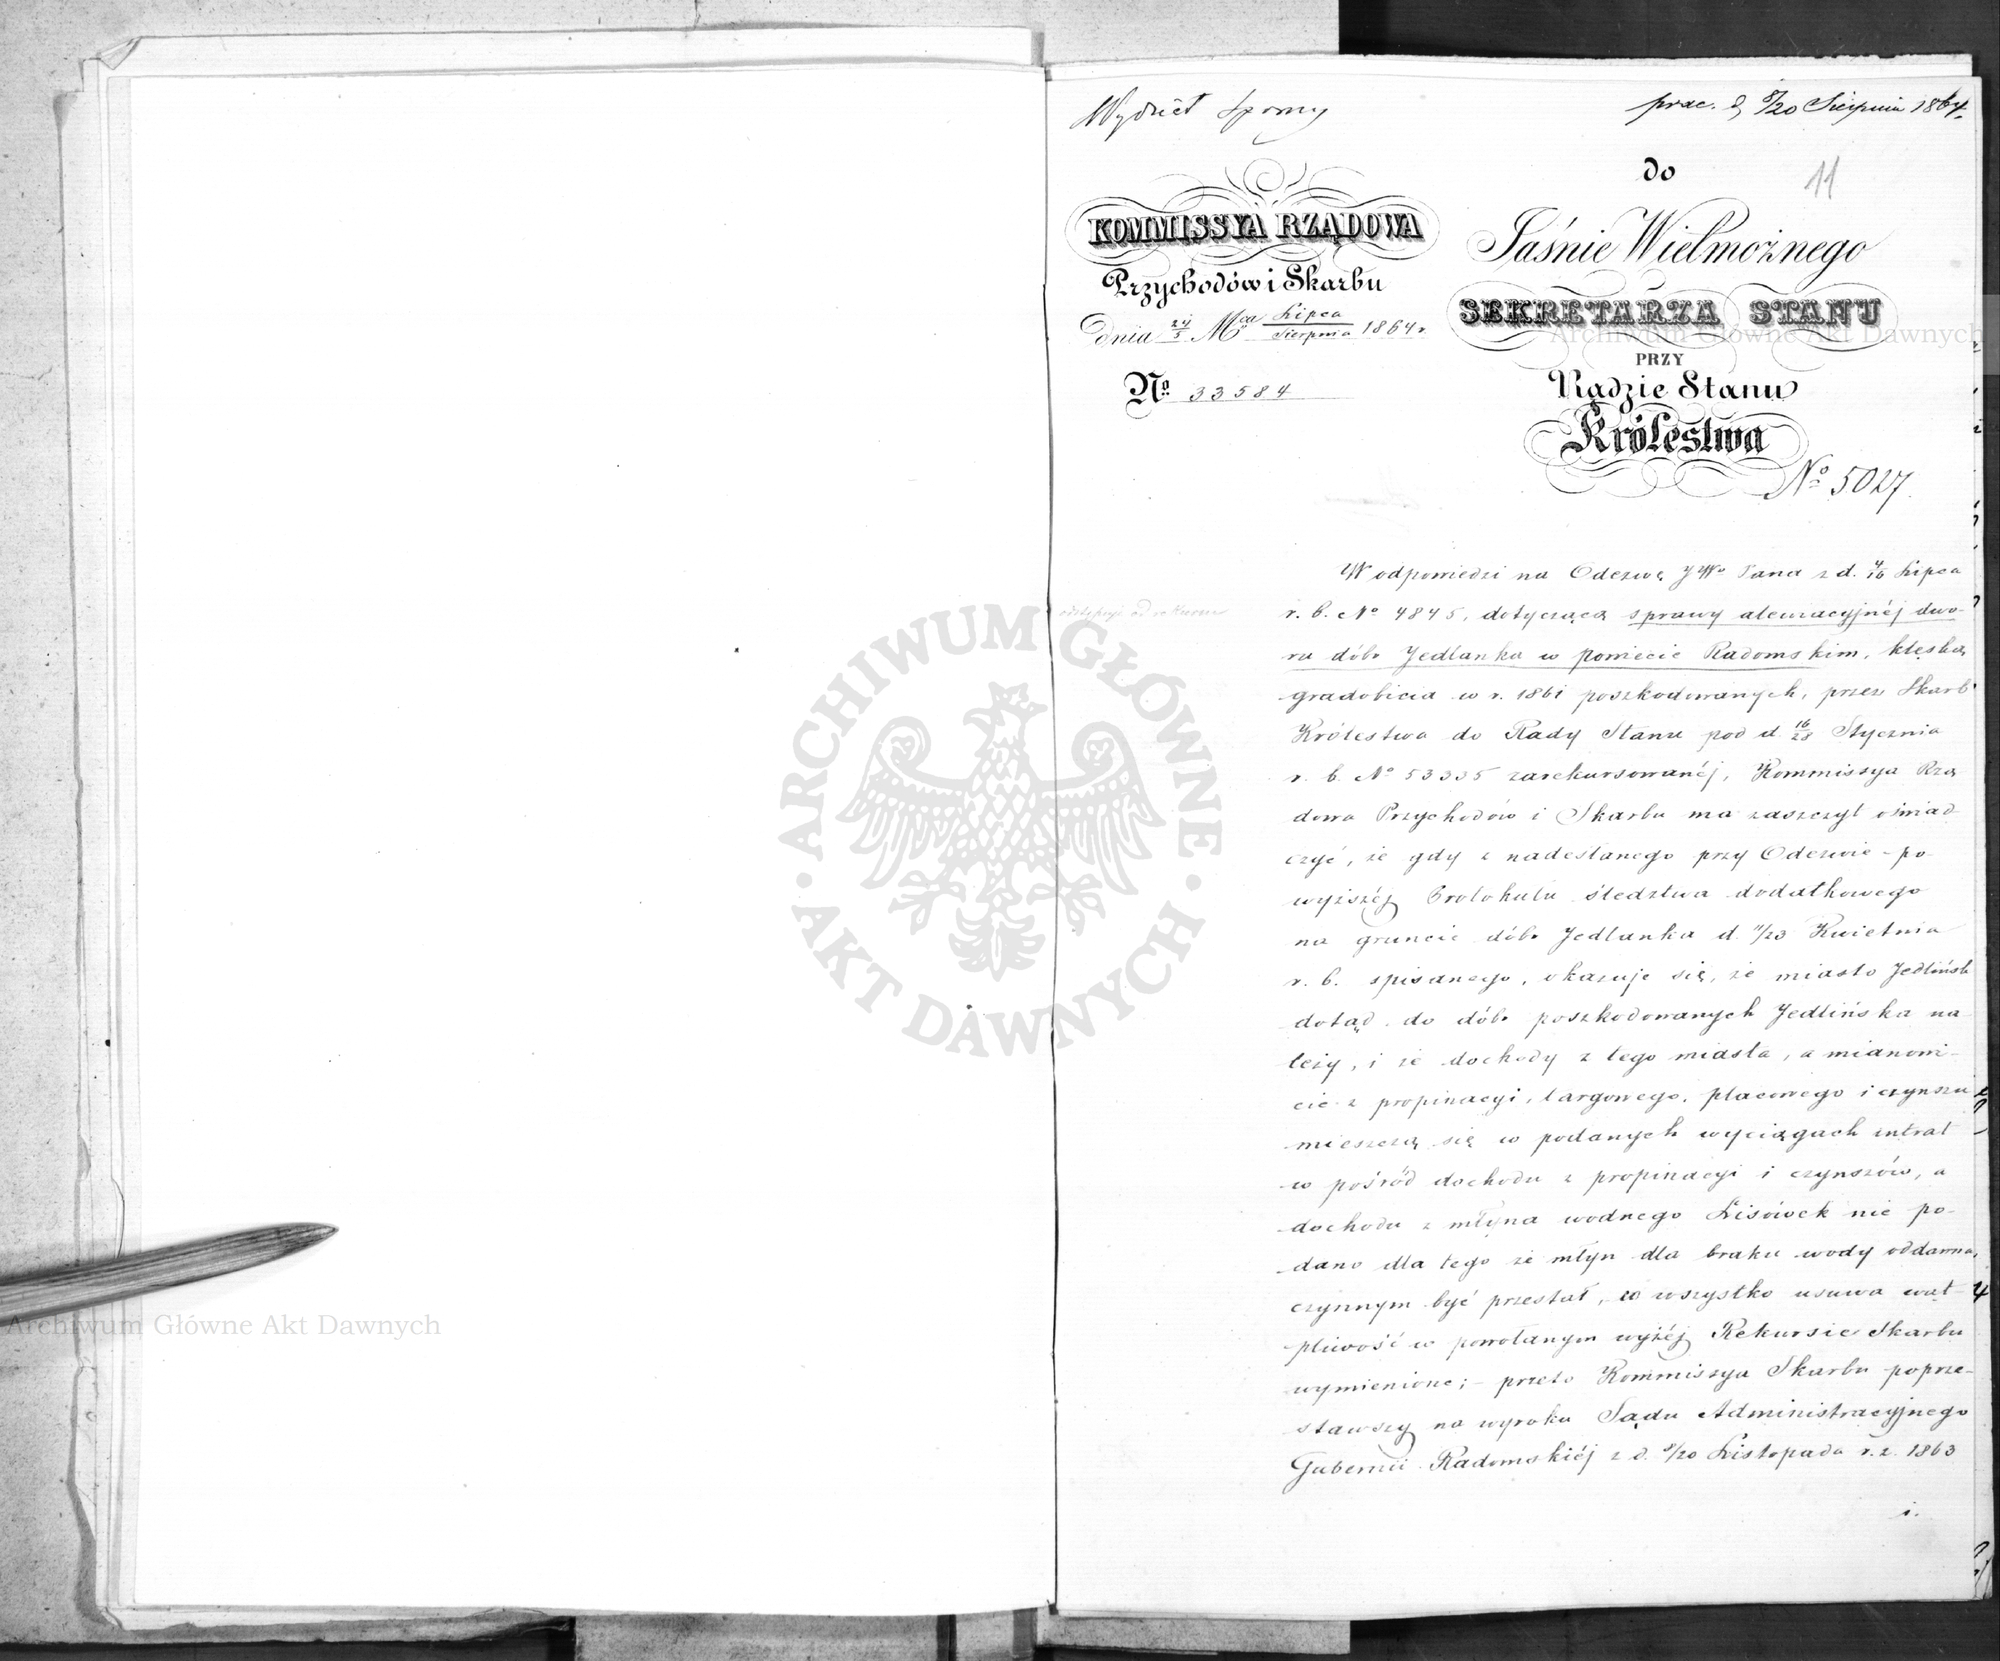 Wydział Sporny
prac. d 8/20 Sierpnia 1864.
11
KOMMISSYA RZĄDOWA
Przychodów i Skarbu
Dnia 24/5 Mca Lipca/Sierpnia 1864 r.
No. 33584
do
Jaśnie Wielmożnego
SEKRETARZA STANU
PRZY
Radzie Stanu
Królestwa
No 5027.
odstępuje od rekursu
W odpowiedzi na Odezwę JWo Pana z d. 4/16 Lipca
r. b. No 4845, dotyczącą sprawy alewiacyjnéj dwo-
ru dóbr Jedlanka w powiecie Radomskim, klęską
gradobicia w r. 1861 poszkodowanych, przez Skarb
Królestwa do Rady Stanu pod d. 16/28 Stycznia
r. b. No 53335 zarekursowanéj, Kommissya Rzą
dowa Przychodów i Skarbu ma zaszczyt oświad
czyć, że gdy z nadesłanego przy Odezwie po-
wyższéj Protokułu śledztwa dodatkowego
na gruncie dóbr Jedlanka d. 11/23 Kwietnia
r. b. spisanego, okazuje się, że miasto Jedlińsk
dotąd do dóbr poszkodowanych Jedlińska na-
leży, i że dochody z tego miasta, a mianowi-
cie z propinacyi, targowego, placowego i czynszu
mieszczą się w podanych wyciągach intrat
w pośród dochodu z propinacyi i czynszów, a
dochodu z młyna wodnego Lisówek nie po-
dano dla tego że młyn dla braku wody oddawna
czynnym być przestał, co wszystko usuwa wąt-
pliwość w powołanym wyżéj Rekursie Skarbu
wymienione; - przeto Kommissya Skarbu poprze-
stawszy na wyroku Sądu Administracyjnego
Gubernii Radomskiéj z d. 8/20 Listopada r. z. 1863
i.
Archiwum Główne Akt Dawnych
ARCHIWUM GŁÓWNE
· AKT DAWNYCH ·
Archiwum Główne Akt Dawnych